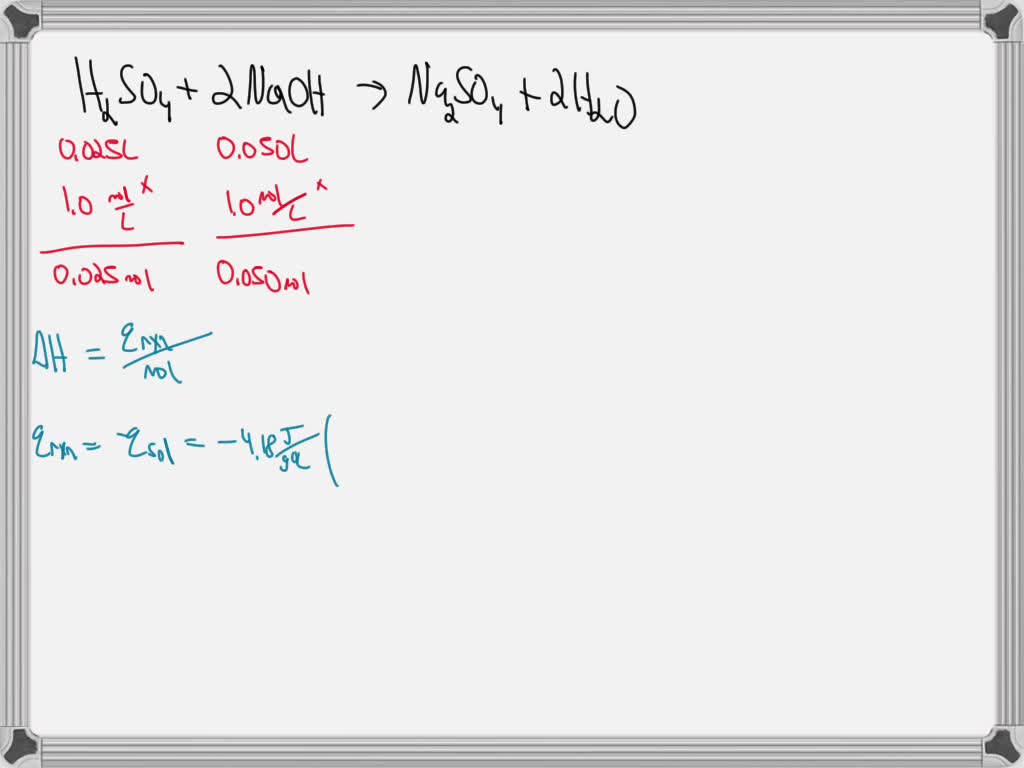 H₂SO₄ + 2NaOH → Na₂SO₄ + 2H₂O
0.025L 0.050L
1.0 mol/L × 1.0 mol/L ×
0.025 mol 0.050 mol
ΔH = qrxn/mol
qrxn = -qsol = -4.18 J/g°C (